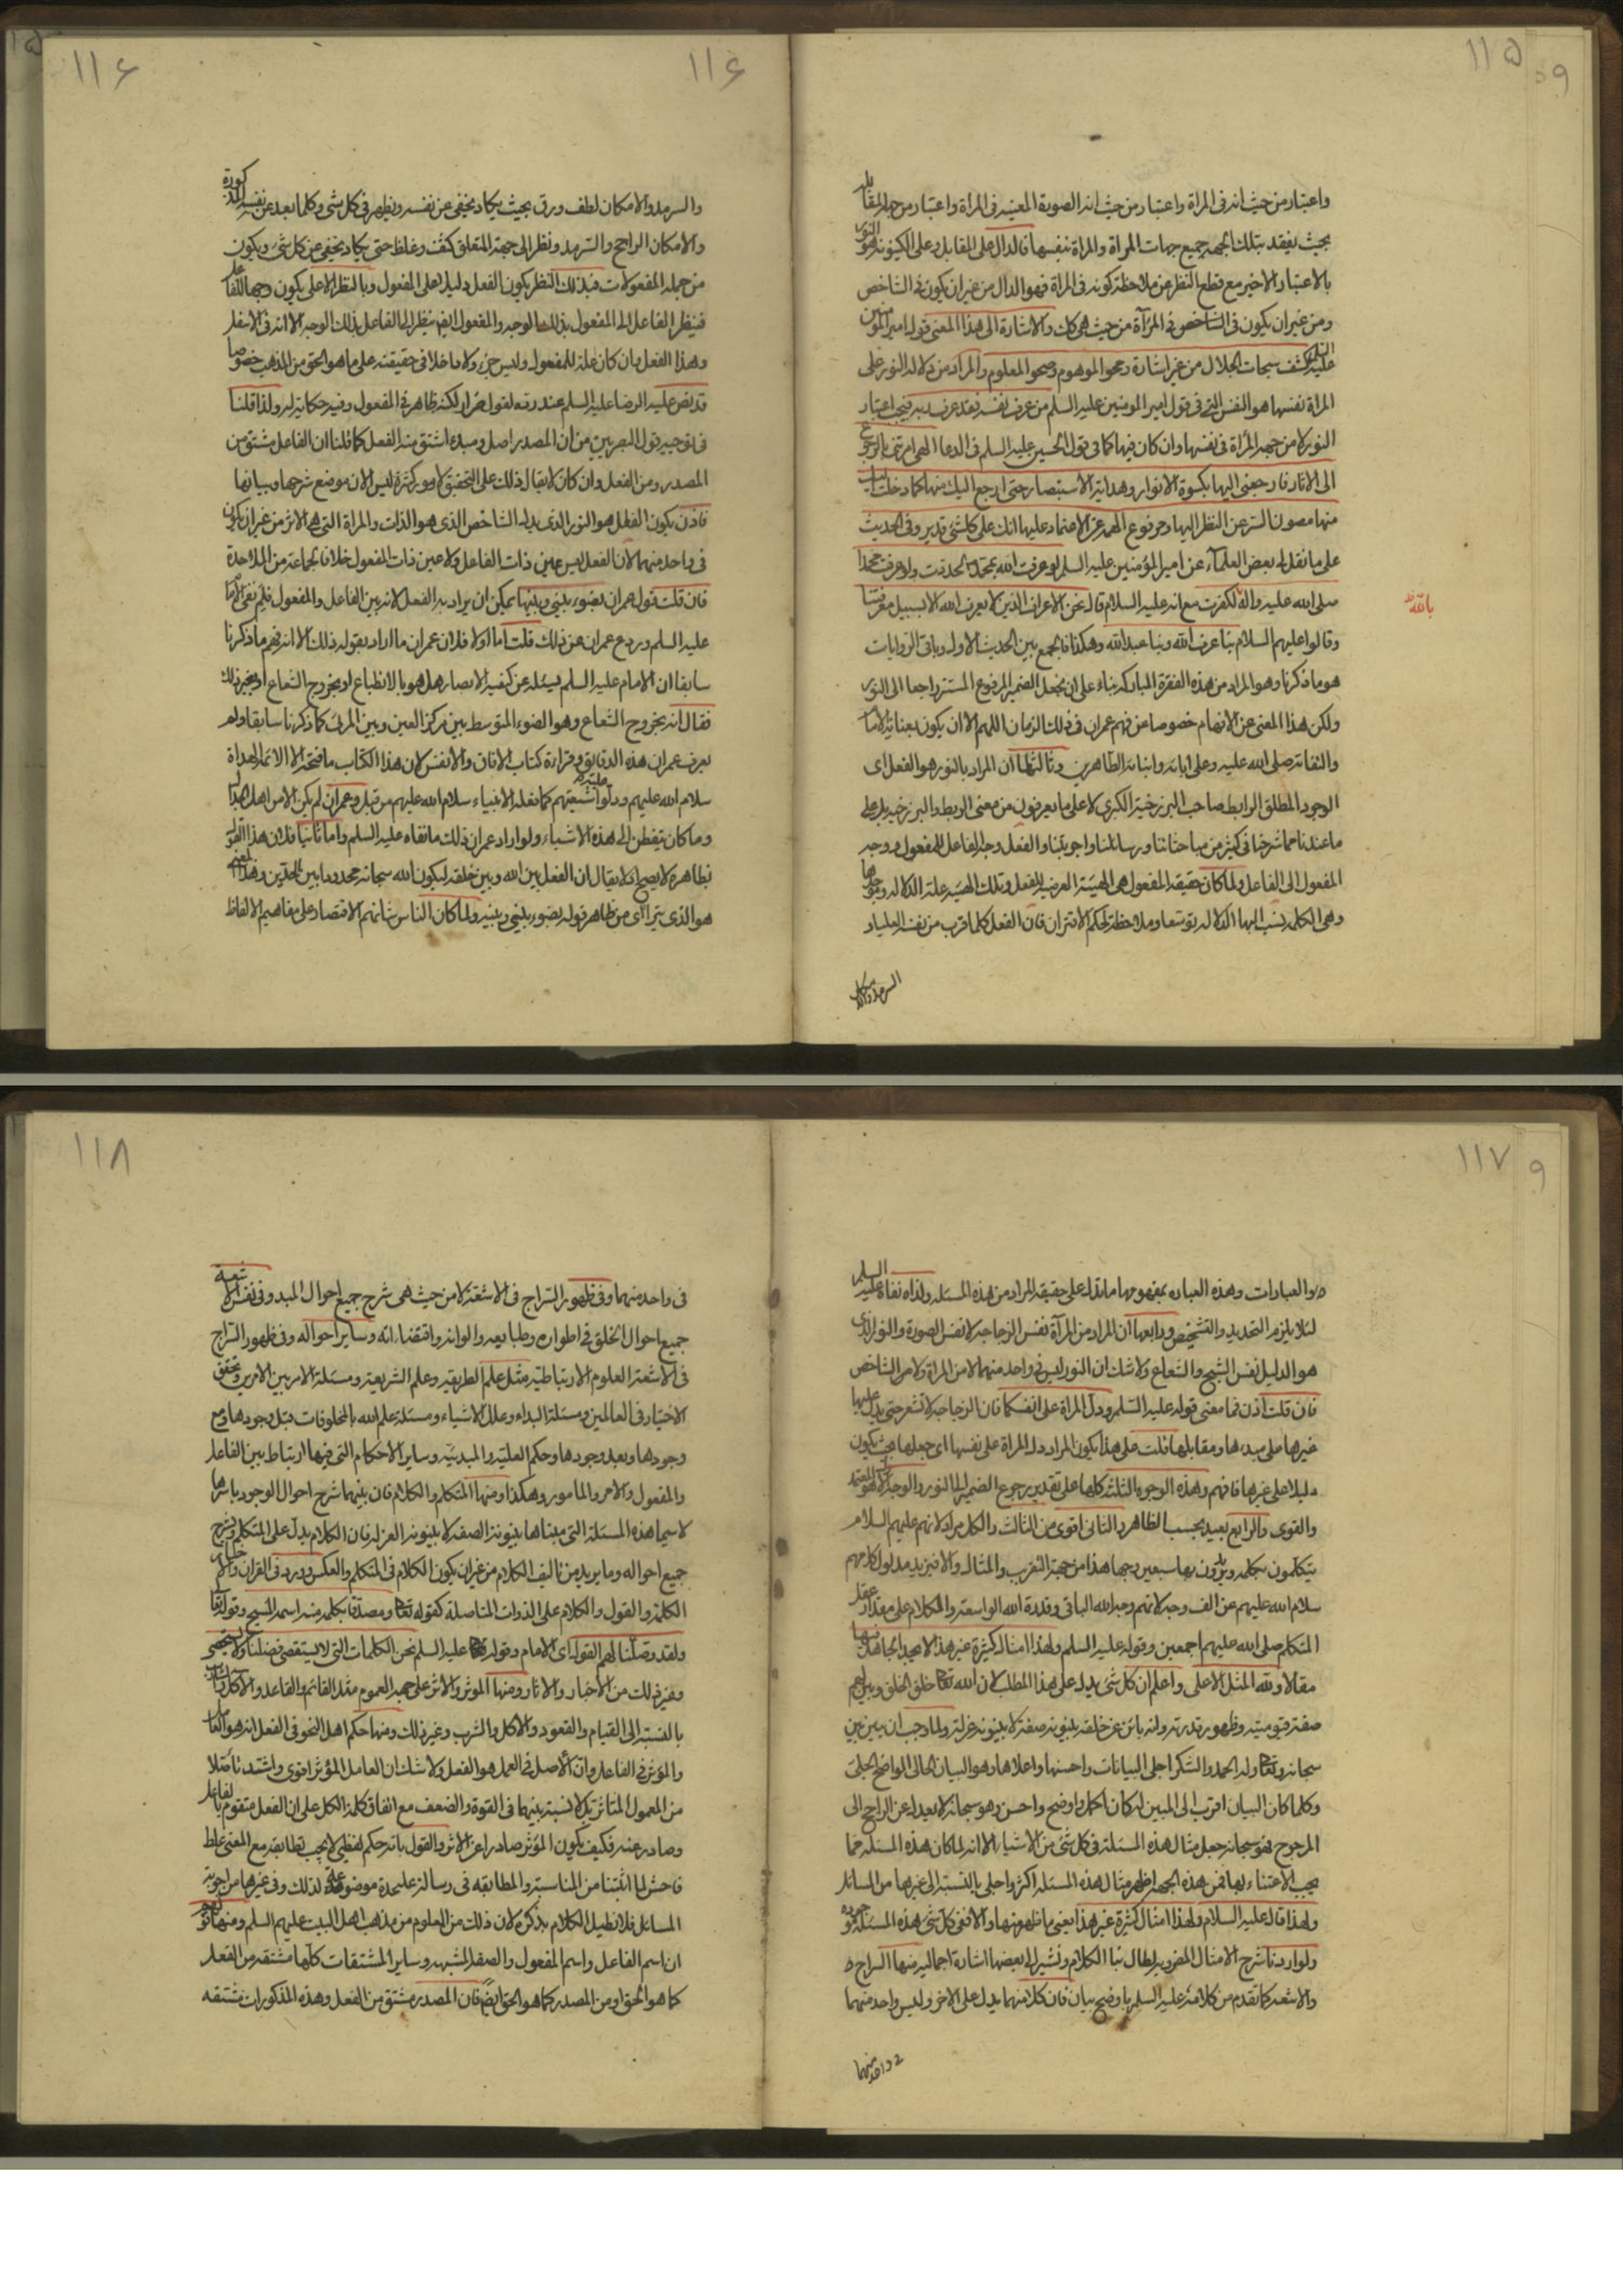 ١١٥
واعتبار من حيث انه فى المراة واعتبار من حيث انه الصورة المعينه فى المراة واعتبار من جهة المقابله
بحيث يفقد بتلك الجهه جميع جهات المراة والمراة نفسها فالدال على المقابل وعلى الكينونه هو النور
بالاعتبار الاخير مع قطع النظر عن ملاحظة كونه فى المراة فهو الدال من غير ان يكون فى الشاخص
ومن غير ان يكون فى الشاخص فى المرآة من حيث هى كك والاشارة الى هذا المعنى قوله امير المؤمنين
عليه السلم كشف سبحات الجلال من غير اشارة ومحو الموهوم وصحو المعلوم والمراد من دلالة النور على
المراة نفسها هو النفس التى فى قول امير المومنين عليه السلم من عرف نفسه فقد عرف ربه فيجب اعتبار
النور لا من جهة المرأة فى نفسها وان كان فيها كما فى قول الحسين عليه السلم فى الدعا الهى امرتنى بالرجوع
الى الاثار فارجعنى اليها بكسوة الانوار وهداية الاستبصار حتى ارجع اليك منها كما دخلت اليك
منها مصون السر عن النظر اليها ومرفوع الهمه عن الاعتماد عليها انك على كل شئ قدير وفى الحديث
على ما نقل له بعض العلمآء عن امير المؤمنين عليه السلم لو عرفت الله بمحمد لحدت ولو عرفت محمدا
صلى الله عليه واله لكفرت مع انه عليه السلام قال نحن الاعراف الذين لا يعرف الله الا بسبيل معرفتنا
بالله ظ
وقالوا عليهم السلام بنا عرف الله وبنا عبد الله وهكذا فالجمع بين الحديث الاول وباقى الروايات
هو ما ذكرنا وهو المراد من هذه الفقرة المباركه بناء على ان نجعل الضمير المرفوع المستتر راجعا الى النور
ولكن هذا المعنى عن الافهام خصوصا عن فهم عمران فى ذلك الزمان اللهم الا ان يكون بعناية الامام
والتفاته صلى الله عليه وعلى ابائه وابنائه الطاهرين وثالثها ان المراد بالنور هو الفعل اى
الوجود المطلق الرابط صاحب البرزخية الكبرى لا على ما يعرفون من معنى الربط والبرزخيه بل على
ما عندنا مما شرحنا فى كثير من مباحثاتنا ورسائلنا واجوبتنا والفعل وجه الفاعل للمفعول ووجه
المفعول الى الفاعل ولما كان حقيقة المفعول هى الهيئة العرضيه للفعل وتلك الهيئه علة الدلاله
وهى الكلمه ينسب اليها الدلاله توسعا وملاحظة لحكم الاقتران فان الفعل كلما قرب من نفسه العليا
السرمد والامكان
١١۶
١١۶
والسرمد والامكان لطف ورق بحيث يكاد يخفى عن نفسه ويظهر فى كل شى وكلما بعد عن نفسه المذكورة
والامكان الراجح والسرمد ونظر الى جهة المتعلق كثف وغلظ حتى يكاد يخفى عن كل شئ ويكون
من جملة المفعولات فبذلك النظر يكون الفعل دليلا على المفعول وبالنظر الاعلى يكون وجها للفاعل
فينظر الفاعل الى المفعول بذلك الوجه والمفعول ايض ينظر الى الفاعل بذلك الوجه الا انه فى الاسفل
وهذا الفعل وان كان علة للمفعول وليس جزء ولا داخلا فى حقيقته على ما هو الحق من المذهب خصوصا
قد نص عليه الرضا عليه السلم عند رده لقول ضرار لكنه ظاهر فى المفعول وفيه حكاية له ولذا قلنا
فى توجيه قول البصريين من ان المصدر اصل ومبدء اشتق منه الفعل كما قلنا ان الفاعل مشتق من
المصدر ومن الفعل وان كان لا يقال ذلك على التحقيق لامور كثيرة ليس الان موضع شرحها وبيانها
فاذن يكون الفعل هو النور الذى يدل الشاخص الذى هو الذات والمراة التى هى الاثر من غير ان يكون
فى واحد منهما لان الفعل ليس عين ذات الفاعل ولا عين ذات المفعول خلافا لجماعة من الملاحدة
فان قلت قول عمران بضوء بينى وبينها يمكن ان يراد به الفعل لانه بين الفاعل والمفعول فلم نفى الامام
عليه السلم وردع عمران عن ذلك قلت اما اولا فلان عمران ما اراد بقوله ذلك الا انه فهم ما ذكرنا
سابقا ان الامام عليه السلم يسئله عن كيفية الابصار هل هو بالانطباع او بخروج الشعاع او بغير ذلك
فقال انه بخروج الشعاع وهو الضوء المتوسط بين مركز العين وبين المرئى كما ذكرنا سابقا ولم
يعرف عمران هذه الدقايق وقراءة كتاب الافاق والانفس لان هذا الكتاب ما فتحه الا الائمة الهداة
سلام الله عليهم ودلوا شيعتهم كما فعله الانبياء سلام الله عليهم من قبل وعمران لم يكن الا من اهل
وما كان يتفطن الى هذه الاشياء ولو اراد عمران ذلك ما نفاه عليه السلم واما ثانيا فلان هذا القول
بظاهره لا يصح اذ لا يقال ان الفعل بين الله وبين خلقه ليكون الله سبحانه محدودا بين الحدين وهذا المعنى
هو الذى يترااى من ظاهر قوله بضوء بينى وبينه ولما كان الناس شانهم الاقتصاد على مفاهيم الالفاظ
١١٧
والعبادات وهذه العباره بمفهومها ما تدل على حقيقة المراد من هذه المسئله ولذا نفاه عليه السلم
لئلا يلزم التحديد والتشخيص ورابعها ان المراد من المرآة نفس الزجاجه لا نفس الصورة والنور الذى
هو الدليل نفس الشبح والشعاع ولا شك ان النور ليس فى واحد منهما لا من المراة ولا من الشاخص
فان قلت اذن فما معنى قوله عليه السلم ودل المراة على انفسكما فان الزجاجه لا تشعر حتى يدل عليها
غيرها على مبدءها ومقابلها قلت على هذا يكون المراد دل المراة على نفسها اى جعلها بحيث يكون
دليلا على غيرها فافهم وهذه الوجوه الثلثة كلها على تقدير رجوع الضمير الى النور والوجه الاول هو المعتمد
والقوى والرابع بعيد بحسب الظاهر والثانى اقوى من الثالث والكل مراد لانهم عليهم السلام
يتكلمون بكلمه ويريدون بها سبعين وجها هذا من جهة التقريب والمثال والا فيزيد مدلول كلامهم
سلام الله عليهم عن الف وجه لانهم وجه الله الباقى وقدرة الله الواسعة والكلام على مقدار عقل
المتكلم صلى الله عليهم اجمعين وقوله عليه السلم ولهذا امثال كثيرة غير هذا لا يجد الجاهل فيها
مقالا ولله المثل الاعلى واعلم ان كل شئ يدل على هذا المطلب لان الله تعالى خلق الخلق
صفة قيوميته وظهور قدرته وانه بائن عن خلقه بينونه صفة لا بينونه عزلة ولما وجب ان يبين
سبحانه وتعالى وله الحمد والشكر اجلى البيانات واحسنها واعلاها وهو البيان الحالى الواضح الجلى
وكلما كان البيان اقرب الى المبين له كان اكمل واوضح واحسن وهو سبحانه لا يعدل عن الراجح الى
المرجوح فهو سبحانه جعل مثال هذه المسئلة فى كل شئ من الاشياء الا انه لما كان هذه المسئله مما
يجب الاعتناء بها فمن هذه الجهة اظهر مثال هذه المسئله اكثر واجلى بالنسبة الى غيرها من المسائل
ولهذا قال عليه السلام ولهذا امثال كثيرة غير هذا يعنى ما ظهر منها والا ففى كل شئ هذه المسئلة موجوده
ولو اردنا شرح الامثال المضروبه لطال بنا الكلام ونشير الى بعضها اشارة اجماليه منها السراج
والاشعه كما تقدم من كلامه عليه السلم باوضح بيان فان كلا منهما يدل على الاخر وليس واحد منهما
فى واحد منهما
١١٨
فى واحد منهما وفى ظهور السراج فى الاشعة لا من حيث هى شرح جميع احوال المبدء وفى نفس الاشعه
جميع احوال الخلق فى اطواره وطبايعه والوانه واقتضاءاته وساير احواله وفى ظهور السراج
فى الاشعة العلوم الارتباطيه مثل علم الطريقه وعلم الشريعة ومسئلة الامر بين الامرين وتحقق
الاختيار فى العالمين ومسئلة البداء وعلل الاشياء ومسئلة علم الله بالمخلوقات قبل وجودها ومع
وجودها وبعد وجودها وحكم العلية والمبدئيه وساير الاحكام التى فيها ارتباط بين الفاعل
والمفعول والامر والمامور وهكذا ومنها المتكلم والكلام فان بينهما شرح احوال الوجود باسرها
لا سيما هذه المسئلة التى مبناها بينونة الصفه لا بينونة العزله فان الكلام يدل على المتكلم وشرح
جميع احواله وما يريد من تاليف الكلام من غير ان يكون الكلام فى المتكلم والعكس وورد فى القران
الكلمة والقول والكلام على الذوات المتاصلة كقوله تعالى ومصدقا بكلمه منه اسمه المسيح وقوله تعالى
ولقد وصلنا لهم القول اى الامام وقوله عليه السلم نحن الكلمات التى لا يستقصى فضلنا ولا يستحصى
وغير ذلك من الاخبار والاثار ومنها الموثر والاثر على جهة العموم مثل القائم والقاعد والآكل والشارب
بالنسبة الى القيام والقعود والاكل والشرب وغير ذلك ومنها حكم اهل النحو فى الفعل انه هو العامل
والمؤثر فى الفاعل وان الاصل فى العمل هو الفعل ولا شك ان العامل المؤثر اقوى واشد تاصلا
من المعمول المتاثر بل لا نسبة بينهما فى القوة والضعف مع اتفاق كلمة الكل على ان الفعل متقوم بالفاعل
وصادر عنه فكيف يكون المؤثر صادرا عن الاثر والقول بانه حكم لفظى لا يجب تطابقه مع المعنى غلط
فاحش لما اثبتنا من المناسبة والمطابقه فى رسالة عليحدة موضوعة لذلك وفى غيرها من اجوبة
المسائل فلا نطيل الكلام بذكره لان ذلك من المعلوم من مذهب اهل البيت عليهم السلم ومنها قولهم
ان اسم الفاعل واسم المفعول والصفة المشبهه وساير المشتقات كلها مشتقه من الفعل
كما هو الحق او من المصدر كما هو الحق ايض فان المصدر مشتق من الفعل وهذه المذكورات مشتقه